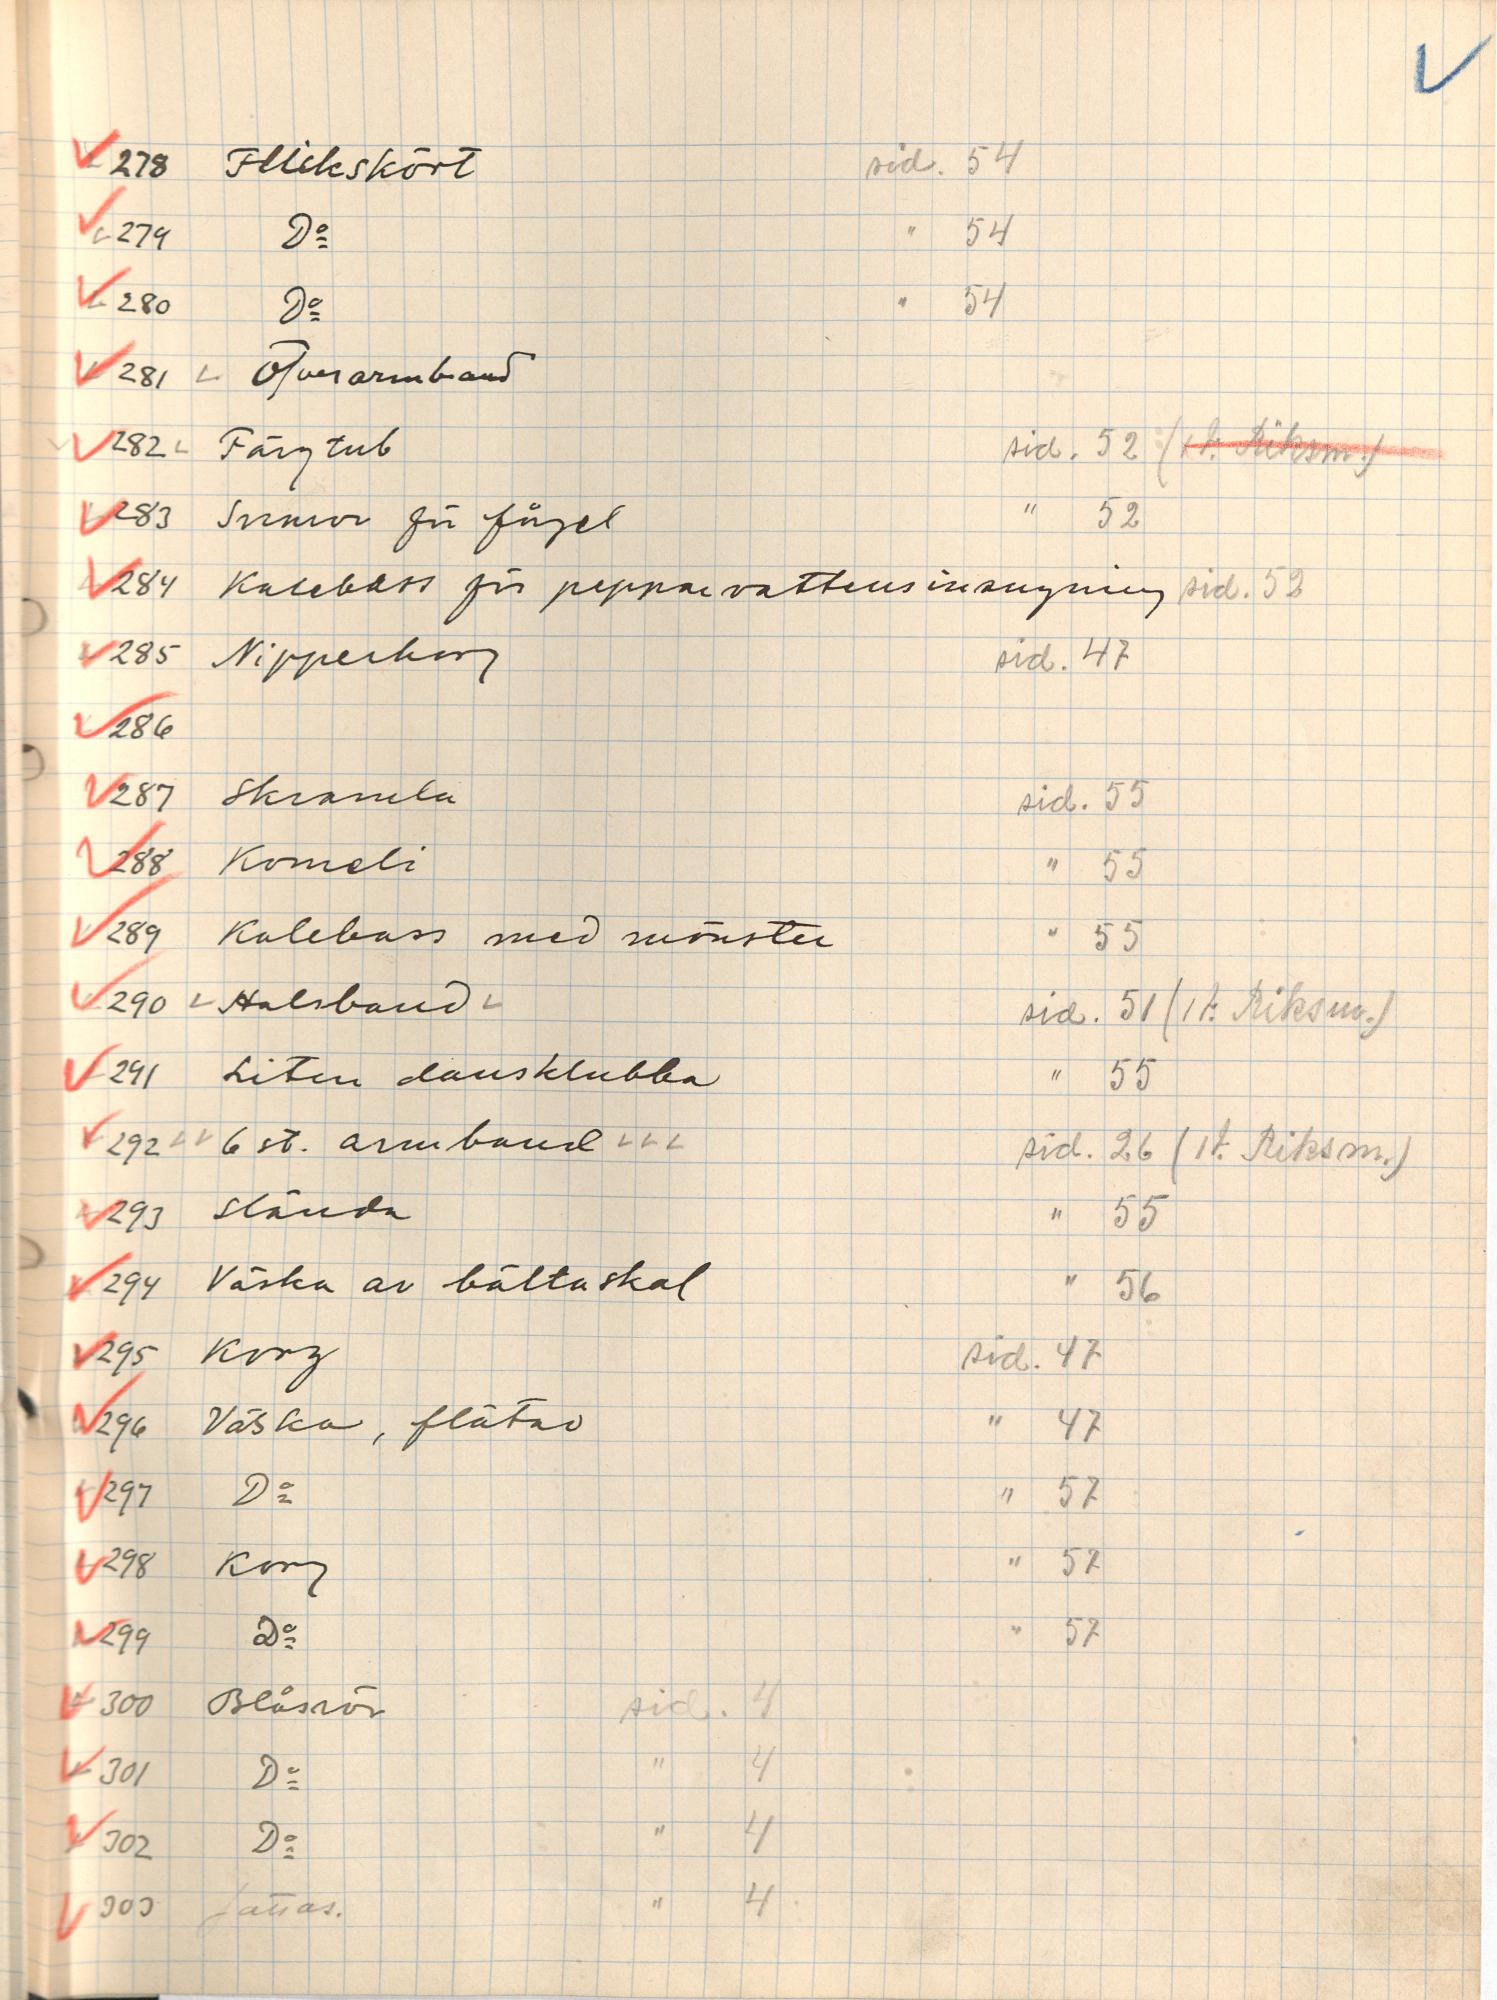 278 Flickskört sid. 54
279 Dº " 54
280 Dº " 54
281 Överarmband
282 Färgtub sid. 52 (1 t. Riksm.)
283 Snaror för fågel " 52
284 Kalebass för pepparvattensinsugning sid. 52
285 Nipperkorg sid. 47
286
287 Skramla sid. 55
288 Komeli " 55
289 Kalebass med mönster " 55
290 Halsband sid. 51 (1 t. Riksm.)
291 Liten dansklubba " 55
292 6 st. armband sid. 26 (1 t. Riksm.)
293 Slända " 55
294 Väska av bältaskal " 56
295 Korg sid. 47
296 Väska, flätad " 47
297 Dº " 57
298 Korg " 57
299 Dº " 57
300 Blåsrör sid. 4
301 Dº " 4
302 Dº " 4
303 fattas. " 4